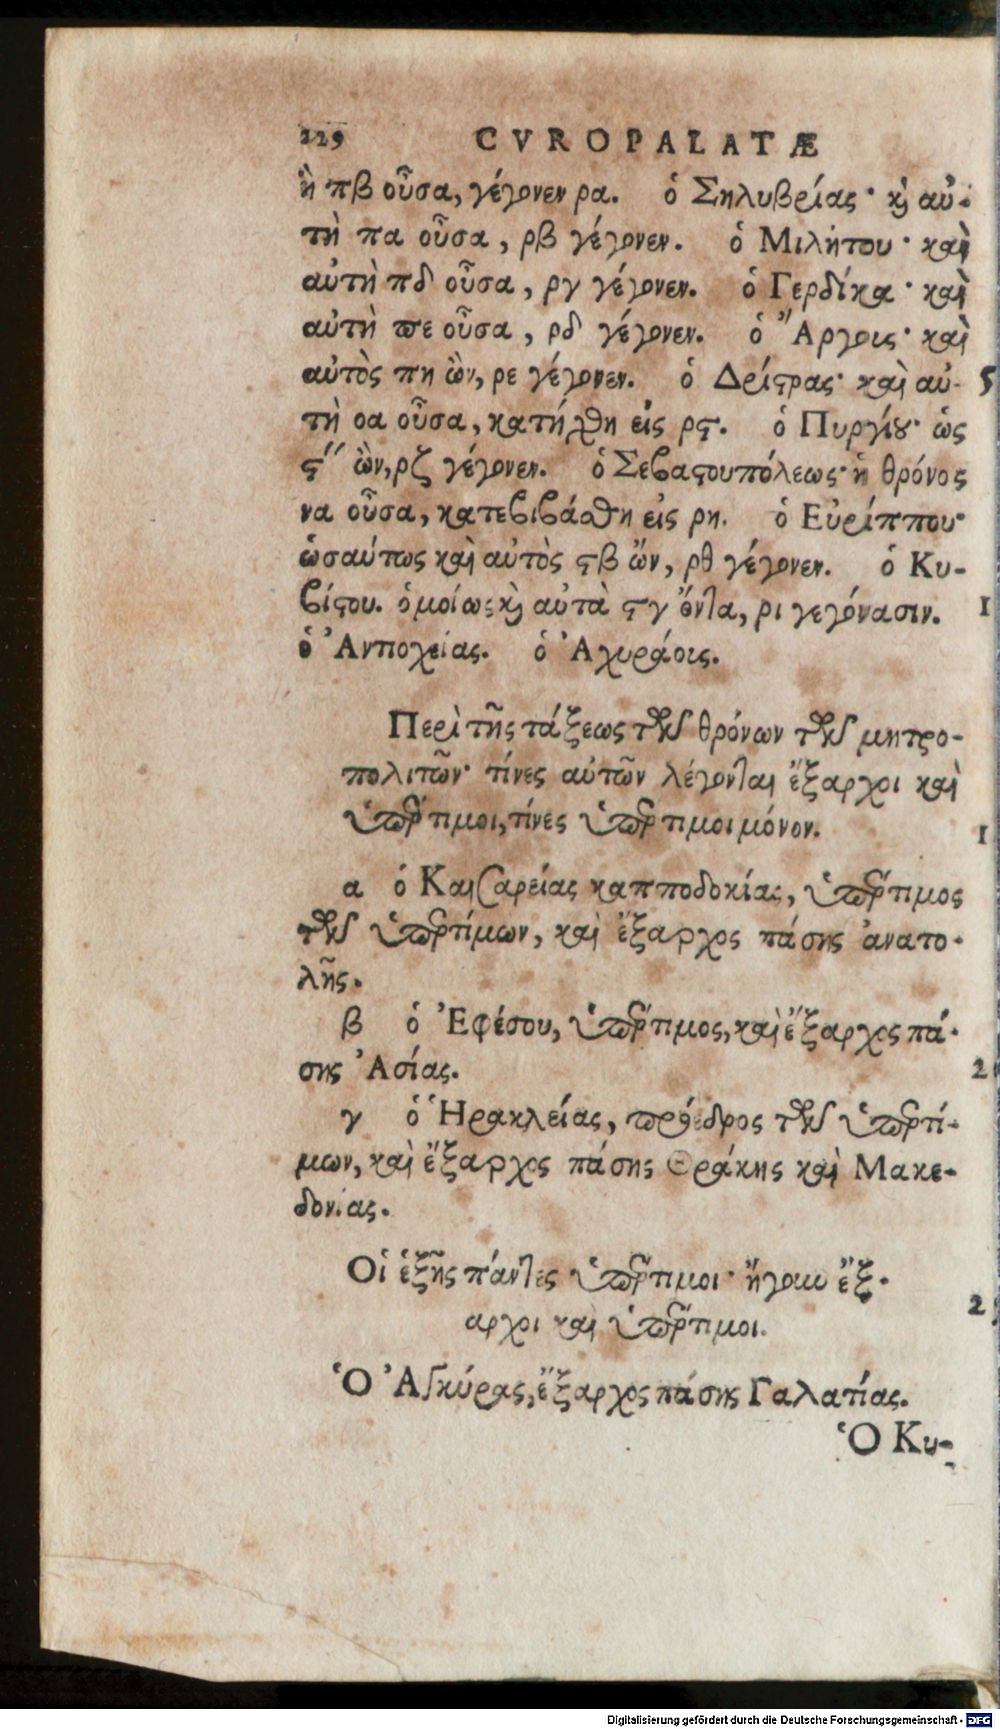 229 CVROPALATÆ
ἡ πβ οὖσα, γέγονεν ρα. ὁ Σηλυβρίας· κ̀ αὐ-
τὴ πα οὖσα, ρβ γέγονεν. ὁ Μιλήτου· καὶ
αὐτὴ πδ οὖσα, ργ γέγονεν. ὁ Γερδίκα· καὶ
αὐτὴ πε οὖσα, ρδ γέγονεν. ὁ Ἄργοις· καὶ
αὐτὸς πη ὢν, ρε γέγονεν. ὁ Δρίστρας· καὶ αὐ- 5
τὴ οα οὖσα, κατήχθη εἰς ρϛ. ὁ Πυργίου· ὡς
ϛʹʹ ὢν, ρζ γέγονεν. ὁ Σεβαστουπόλεως· ἡ θρόνος
να οὖσα, κατεβιβάσθη εἰς ρη. ὁ Εὐρίππου·
ὡσαύτως καὶ αὐτὸς ϛβ ὤν, ρθ γέγονεν. ὁ Κυ-
βίστου. ὁμοίως κ̀ αὐτὰ ϛγ ὄντα, ρι γεγόνασιν. 1
ὁ Ἀντιοχείας. ὁ Ἀχυράοις.
Περὶ τῆς τάξεως τῶν θρόνων τῶν μητρο-
πολιτῶν· τίνες αὐτῶν λέγονται ἔξαρχοι καὶ
ὑπέρτιμοι, τίνες ὑπέρτιμοι μόνον. 1
α ὁ Καισαρείας καππодοκίας, ὑπέρτιμος
τῶν ὑπερτίμων, καὶ ἔξαρχος πάσης ἀνατο-
λῆς.
β ὁ Ἐφέσου, ὑπέρτιμος, καὶ ἔξαρχος πά-
σης Ἀσίας. 2
γ ὁ Ἡρακλείας, πρόεδρος τῶν ὑπερτί-
μων, καὶ ἔξαρχος πάσης Θράκης καὶ Μακε-
δονίας.
Οἱ ἑξῆς πάντες ὑπέρτιμοι· ἤγουν ἔξ-
αρχοι καὶ ὑπέρτιμοι. 2
Ὁ Ἀγκύρας, ἔξαρχος πάσης Γαλατίας.
Ὁ Κυ-
Digitalisierung gefördert durch die Deutsche Forschungsgemeinschaft - DFG